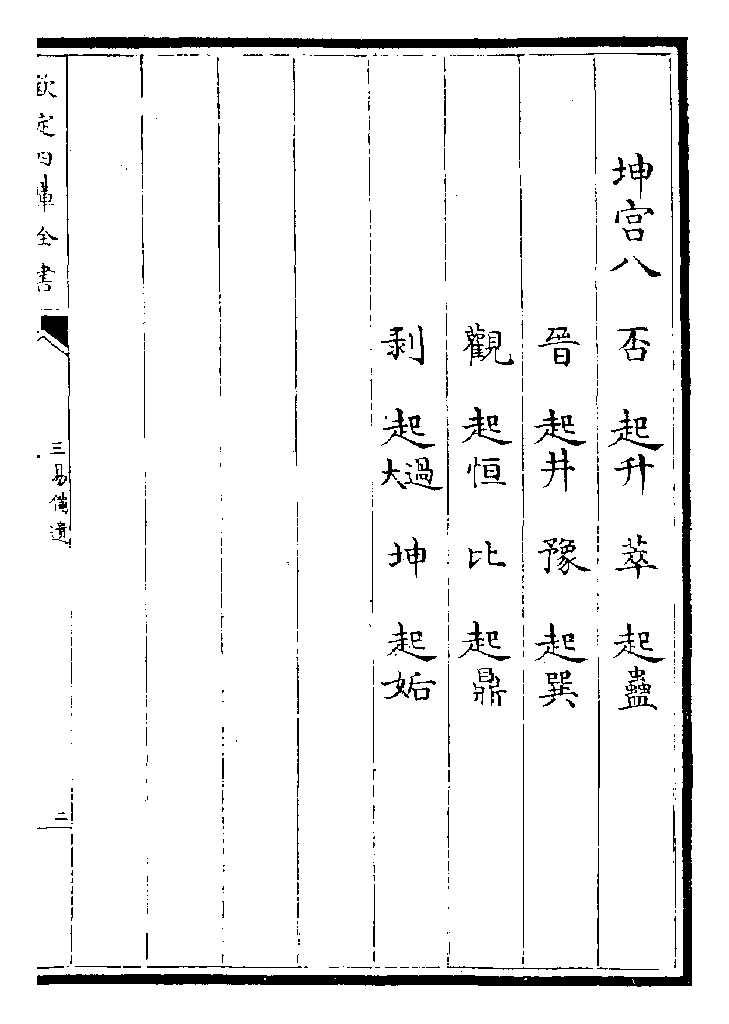 坤宫八　否　起升　萃　起蠱
晉　起井　豫　起巽
觀　起恒　比　起鼎
剥　起大過　坤　起姤
欽定四庫全書
三易備遺
二